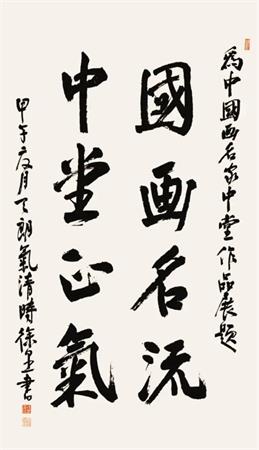 爲中國画名家中堂作品展題
國画名流
中堂正氣
甲午夏月天朗氣清時徐里書